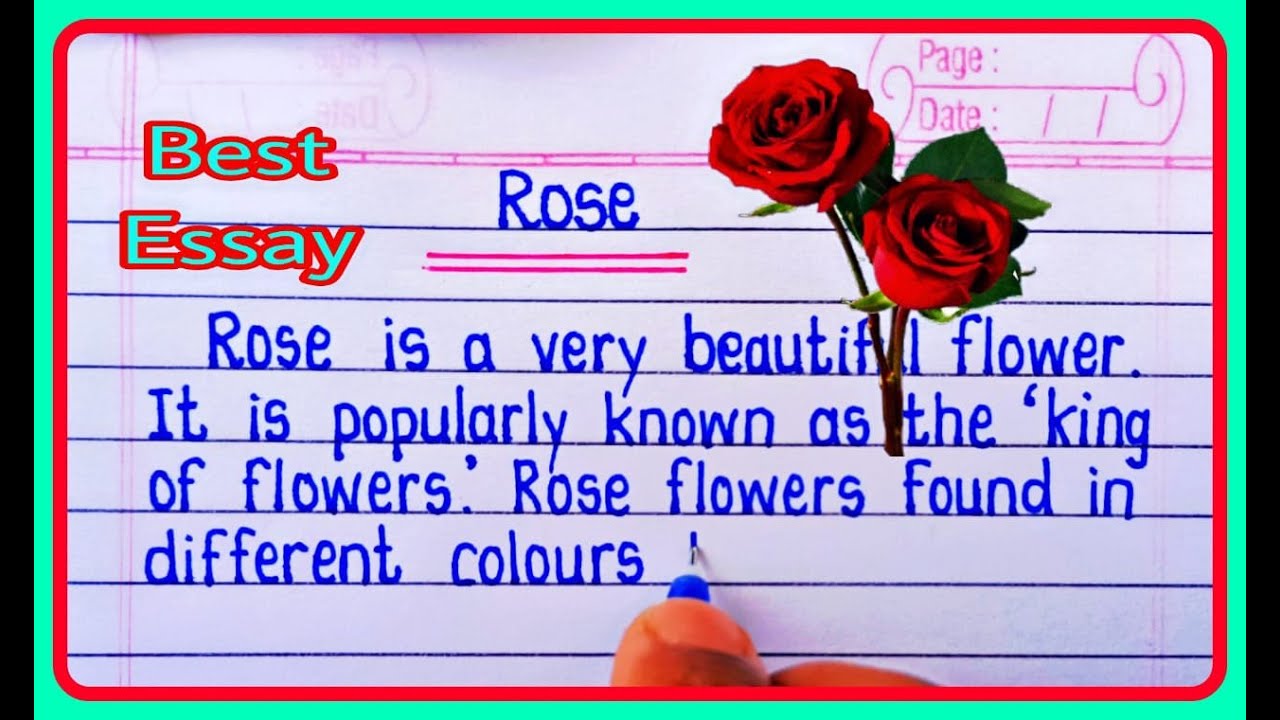 Page :
Date : / /
Best
Essay
Rose
Rose is a very beautiful flower.
It is popularly known as the ‘king
of flowers.’ Rose flowers found in
different colours